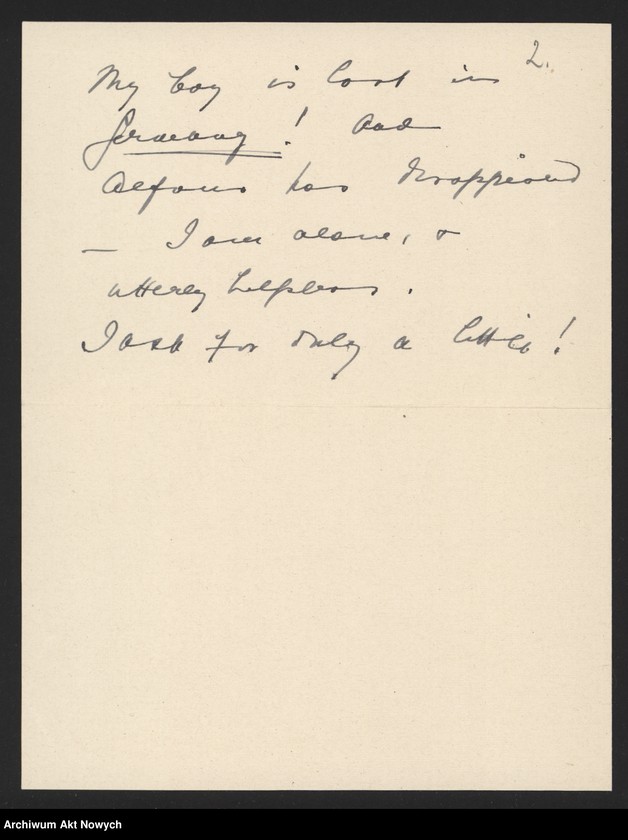 2.
My boy is lost in
Germany! And
Alfons has disappeared
— I am alone, &
utterly helpless.
I ask for only a little!
Archiwum Akt Nowych